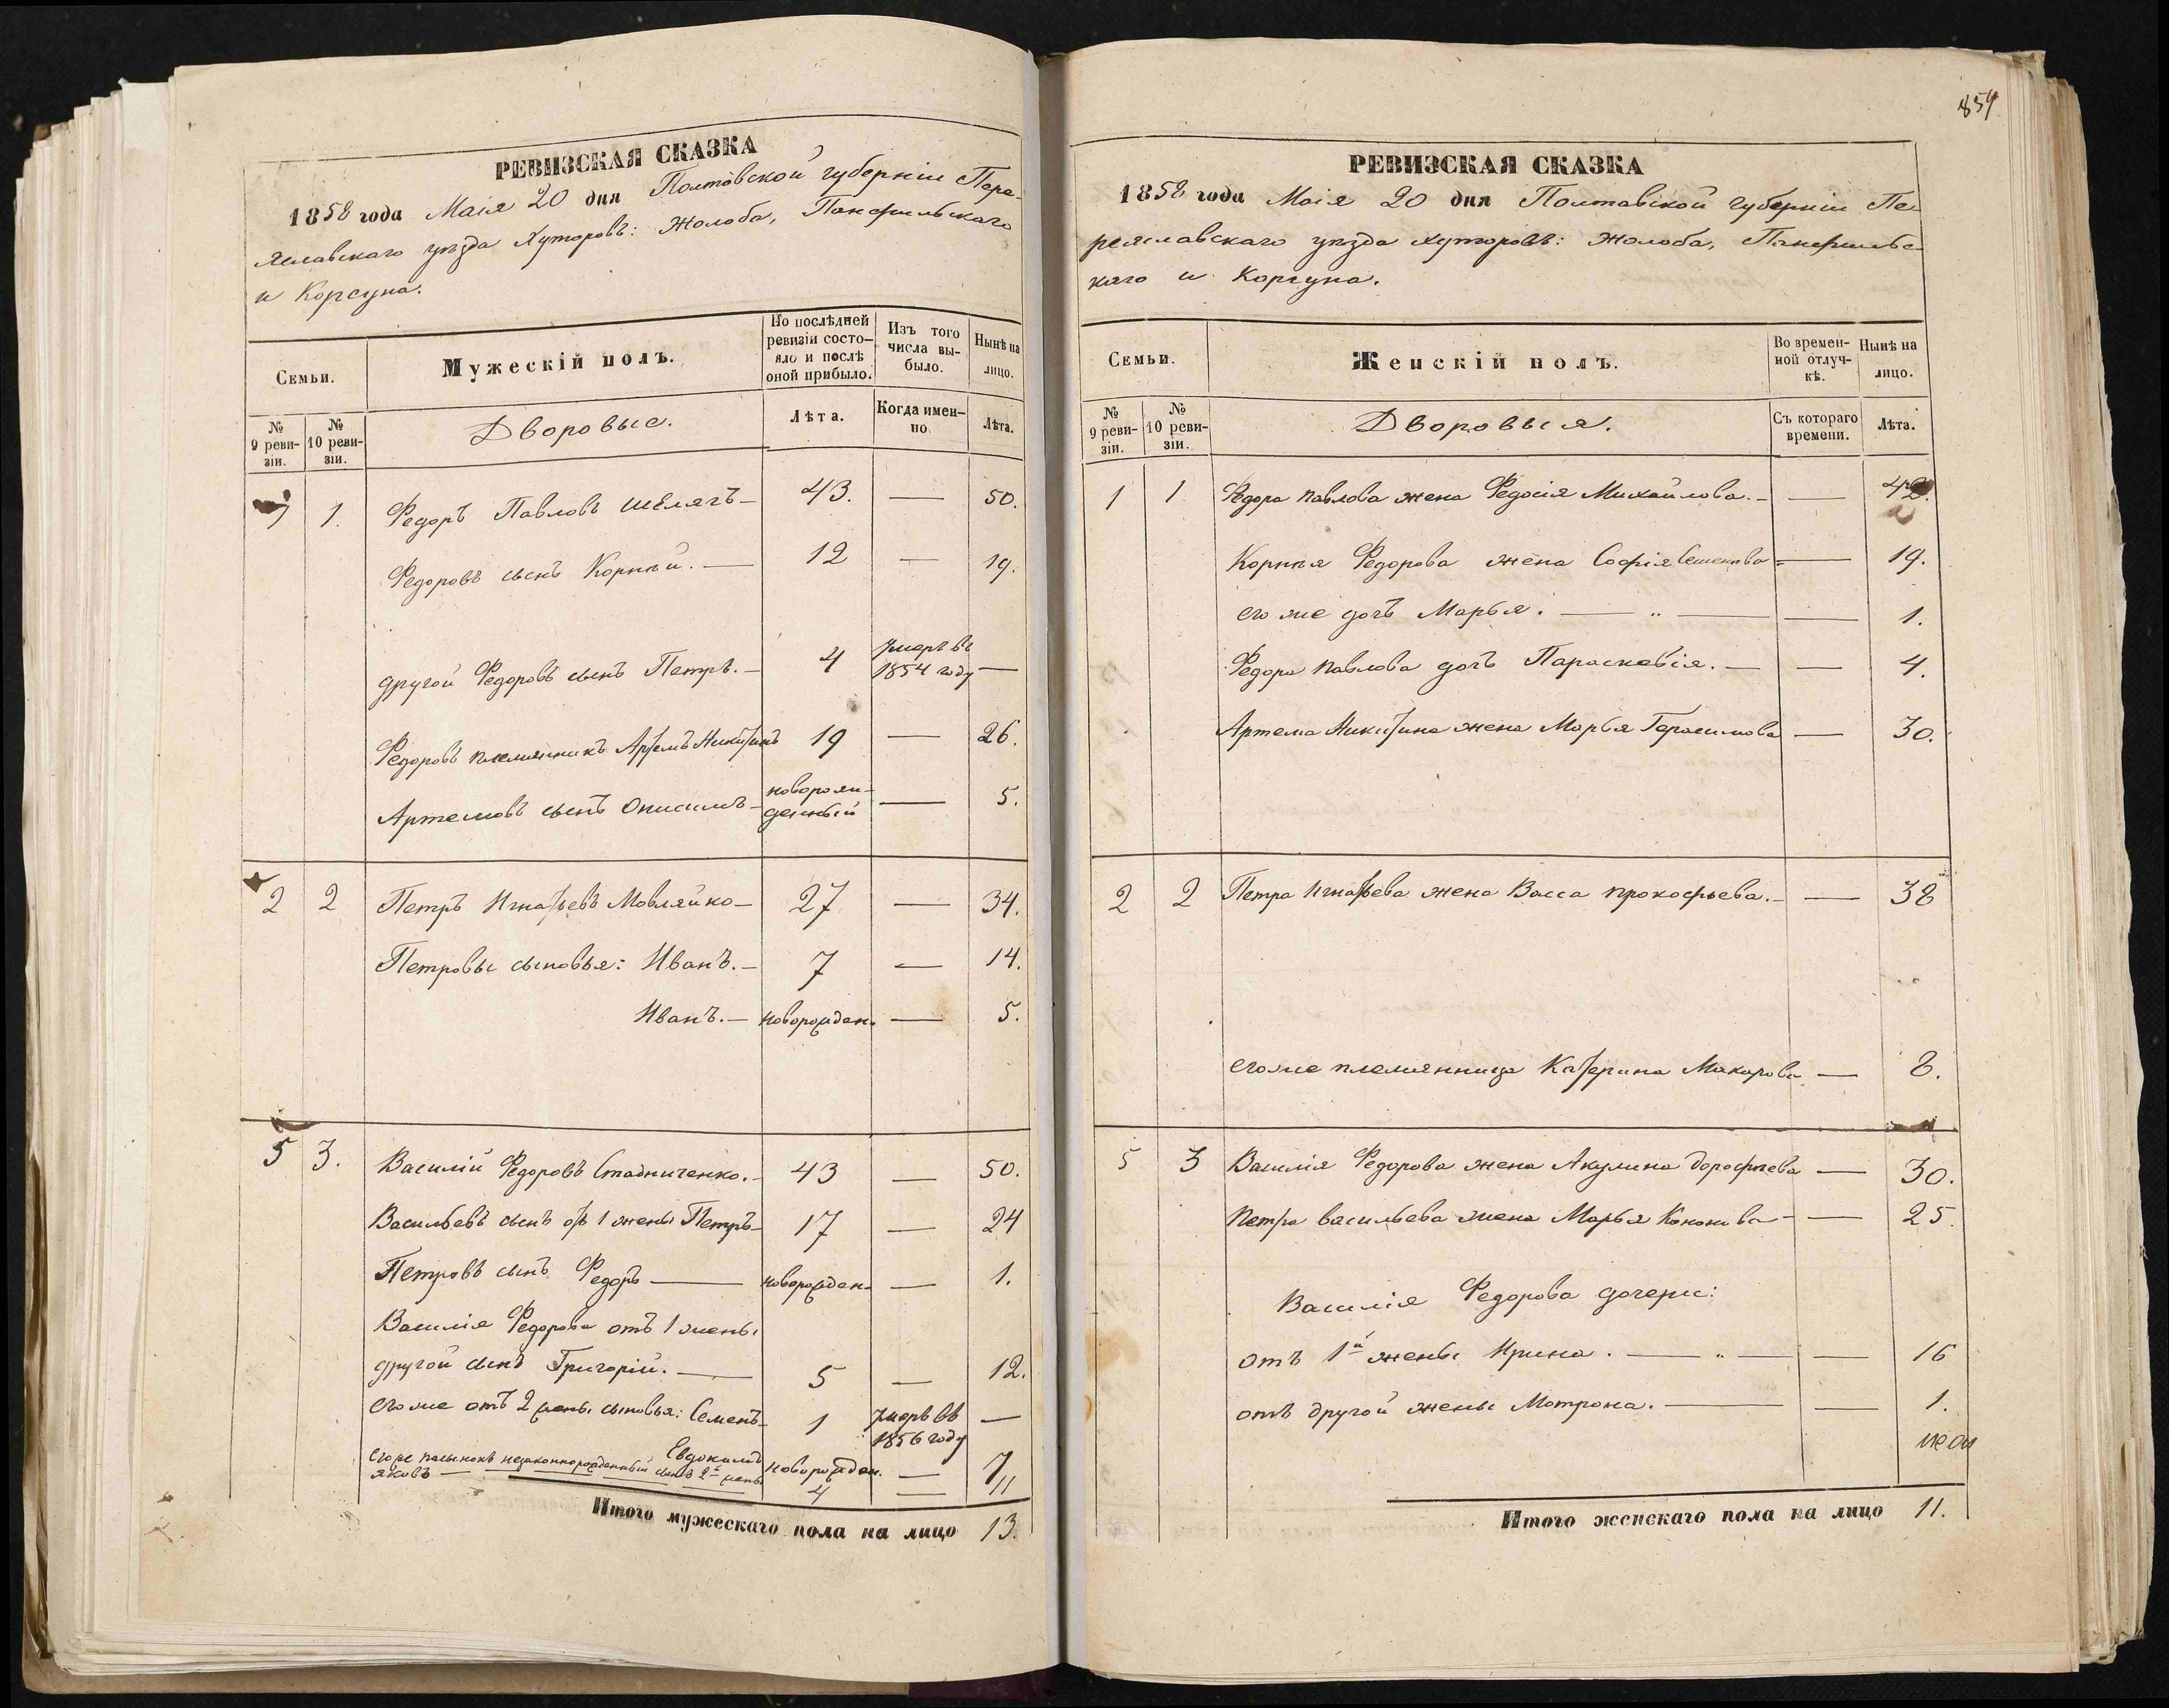 РЕВИЗСКАЯ СКАЗКА
1858 года Маія 20 дня Полтавской губерніи Пере-
яславскаго уѣзда Хуторовъ: Жолоба, Панфильскаго
и Корсуна.
Семьи.
Мужескій полъ.
По послѣдней ревизіи состо-
яло и послѣ оной прибыло.
Изъ того числа вы-
было.
Нынѣ на лицо.
№ 9 реви-
зіи.
№ 10 реви-
зіи.
Дворовые.
Лѣта.
Когда имен-
но.
Лѣта.
1. Федоръ Павловъ Шелягъ— 43. — 50.
Федоровъ сынъ Корнѣй. — 12 — 19.
другой Федоровъ сынъ Петръ. — 4 умеръ въ 1854 году —
Федоровъ племянникъ Артемъ Никитинъ 19 — 26.
Артемовъ сынъ Онисимъ— новорож-
денный — 5.
2 2 Петръ Игнатьевъ Мовляйко— 27 — 34.
Петровы сыновья: Иванъ. — 7 — 14.
Иванъ. — новорожден. — 5.
5 3. Василій Федоровъ Стадниченко. — 43 — 50.
Васильевъ сынъ отъ 1 жены Петръ— 17 — 24
Петровъ сынъ Федоръ — новорожден. — 1.
Василія Федорова отъ 1 жены
другой сынъ Григорій. — 5 — 12.
его же отъ 2 жены сыновья: Семенъ— 1 умеръ въ 1856 году —
Евдокимъ новорожден. — 7
его же пасынокъ незаконнорожденный сынъ 2й жены
Яковъ — 4 — 11
Итого мужескаго пола на лицо 13.
854
РЕВИЗСКАЯ СКАЗКА
1858 года Маія 20 дня Полтавской губерніи Пе-
реяславскаго уѣзда хуторовъ: Жолоба, Панфильс-
каго и Корсуна.
Семьи.
Женскій полъ.
Во времен-
ной отлуч-
кѣ.
Нынѣ на лицо.
№ 9 реви-
зіи.
№ 10 реви-
зіи.
Дворовыя.
Съ котораго времени.
Лѣта.
1 1 Федора Павлова жена Федосія Михайлова. — — 42.
Корнѣя Федорова жена Софія Семенова — 19.
его же дочь Марья. — " — — 1.
Федора Павлова дочь Параскевія. — — 4.
Артема Никитина жена Марья Герасимова — 30.
2 2 Петра Игнатьева жена Васса Прокофьева. — — 38
его же племянница Катерина Макарова — 8.
5 3 Василія Федорова жена Акулина Дорофѣева — 30.
Петра Васильева жена Марья Кононова — — 25.
Василія Федорова дочери:
отъ 1й жены Ирина. — " — — 16
отъ другой жены Мотрона. — — 1.
Итого женскаго пола на лицо 11.